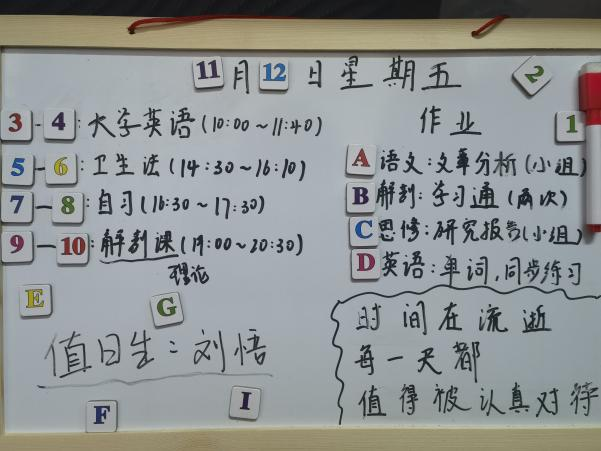 11月12日星期五
2
3-4:大学英语(10:00~11:40)
5-6:卫生法(14:30~16:10)
7-8:自习(16:30~17:30)
9-10:解剖课(19:00~20:30)
理论
作业
1
A 语文:文章分析(小组)
B 解剖:学习通(两次)
C 思修:研究报告(小组)
D 英语:单词,同步练习
E
G
值日生:刘悟
F
I
时间在流逝
每一天都
值得被认真对待